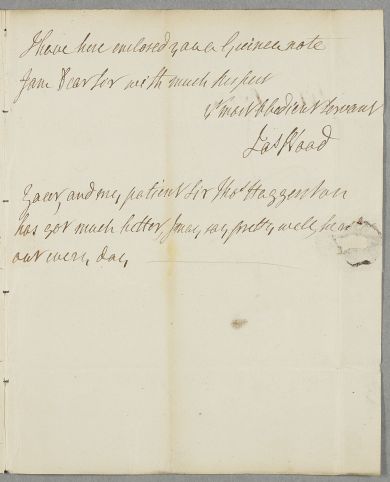 I have here enclosed you a Guinea note
I am Dear Sir with much respect
Yr most obedient Servant
Jas Wood
Your, and my, patient Sir Thos Haggerston
has got much better, I may say pretty well, he is
out every day,